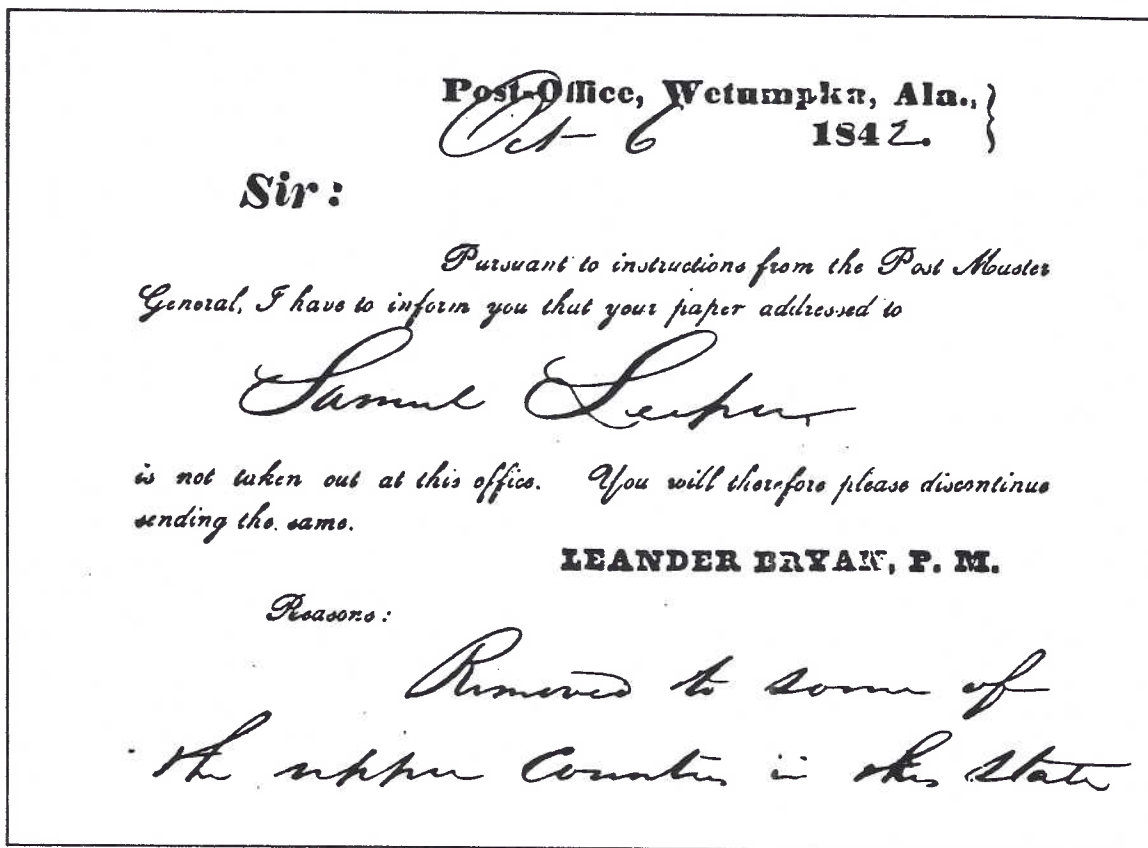 Post-Office, Wetumpka, Ala.,
Oct 6 1842.
Sir:
Pursuant to instructions from the Post Master
General, I have to inform you that your paper addressed to
Samuel Leeper
is not taken out at this office. You will therefore please discontinue
sending the same.
LEANDER BRYAN, P. M.
Reasons:
Removed to some of
the upper Counties in this State